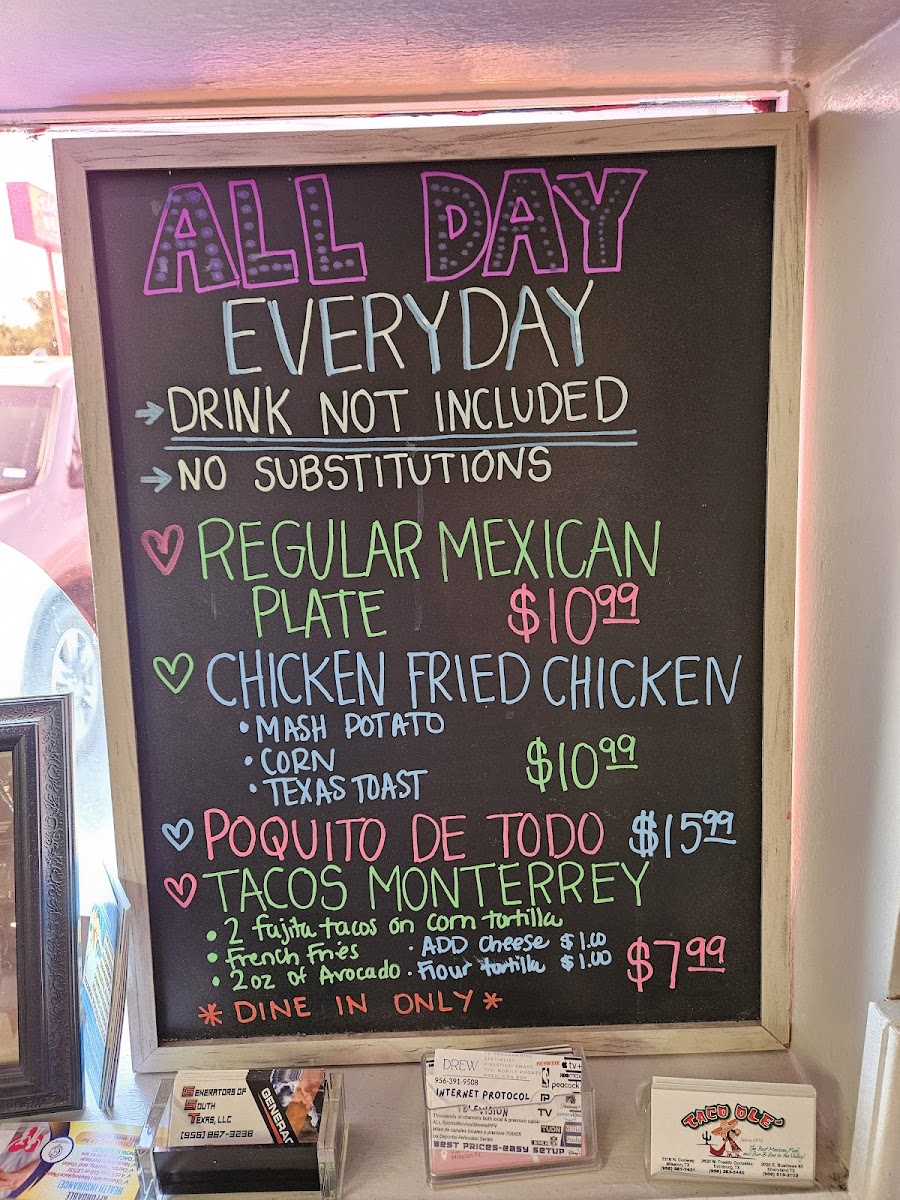 ALL DAY
EVERYDAY
→ DRINK NOT INCLUDED
→ NO SUBSTITUTIONS
♡ REGULAR MEXICAN
PLATE $10.99
♡ CHICKEN FRIED CHICKEN
• MASH POTATO
• CORN
• TEXAS TOAST
$10.99
♡ POQUITO DE TODO $15.99
♡ TACOS MONTERREY
• 2 fajita tacos on corn tortilla
• French Fries
• 2oz of Avocado
· ADD Cheese $1.00
· Flour tortilla $1.00
$7.99
* DINE IN ONLY *
GENERATORS OF
SOUTH
TEXAS, LLC
GENERAC
DREW
956-391-9508
INTERNET PROTOCOL
TELEVISION
BEST PRICES-EASY SETUP
tv+
peacock
TACO OLE'
The Best Mexican Food
and Bar-B-Que in the Valley!
Mission, TX
Edinburg, TX